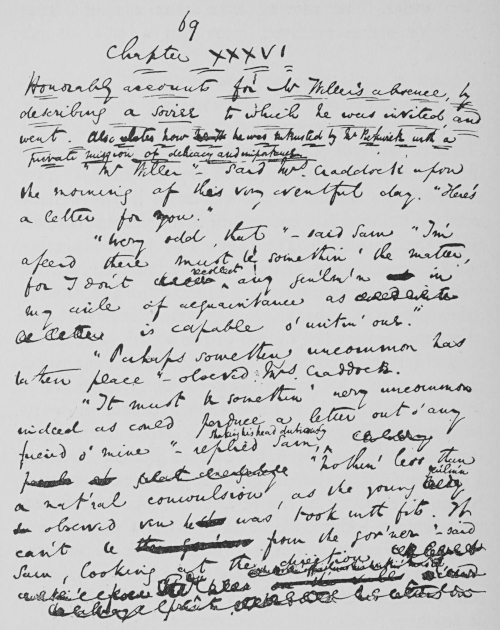 69
Chapter XXXVI
Honorably accounts for Mr Weller's absence, by
describing a soiree to which he was invited and
went. Also relates how he was intrusted by Mr Pickwick with a
private mission of delicacy and importance
"Mr Weller" – said Mrs Craddock upon
the morning of this very eventful day. "Here's
a letter for you."
"Wery odd, that" – said Sam "I'm
afeerd there must be somethin' the matter,
for I don't recollect any gen'lm'n in
my circle of acquaintance as
is capable o' writin' one."
"Perhaps something uncommon has
taken place" – observed Mrs Craddock.
"It must be somethin' wery uncommon
indeed as could produce a letter out o' any
friend o' mine" – replied Sam, shaking his head dubiously
"nothin' less than
a nat'ral conwulsion, as the young gen'lm'n
observed ven he was took with fits. It
can't be from the gov'ner" – said
Sam, looking at the direction.